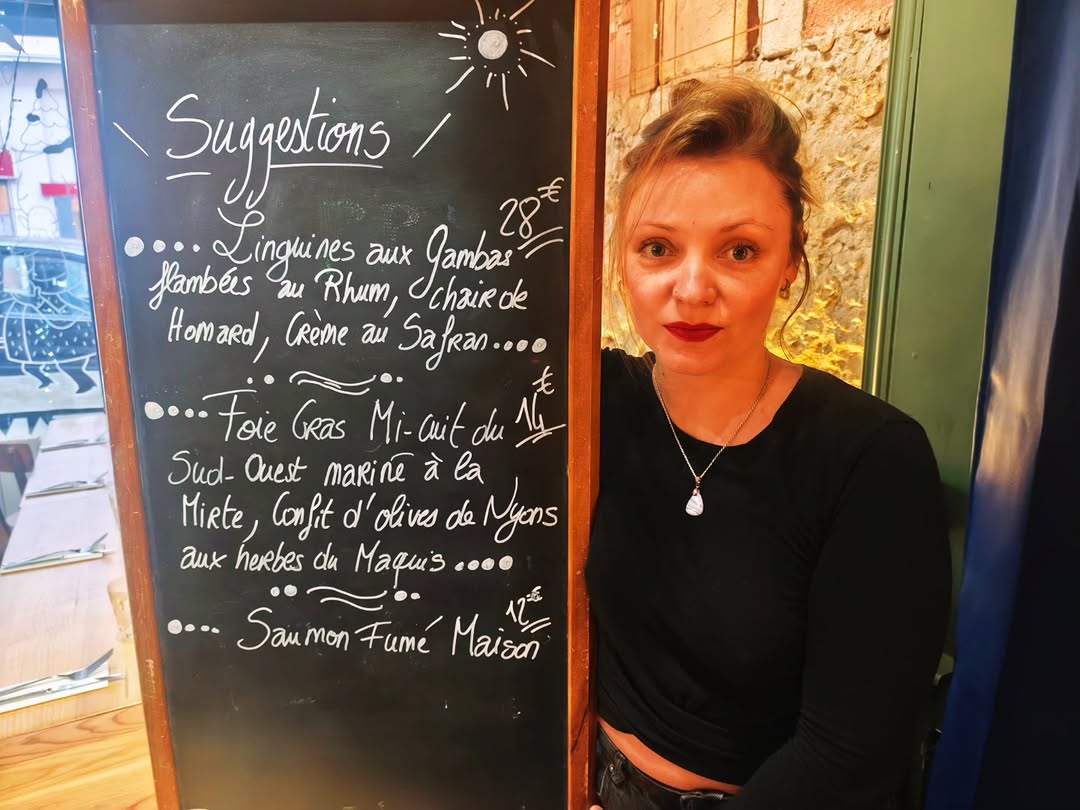 Suggestions
28€
Linguines aux Gambas
flambées au Rhum, chair de
Homard, Crème au Safran....
14€
Foie Gras Mi-cuit du
Sud-Ouest mariné à la
Mirte, Confit d'olives de Nyons
aux herbes du Maquis....
12€
Saumon Fumé Maison